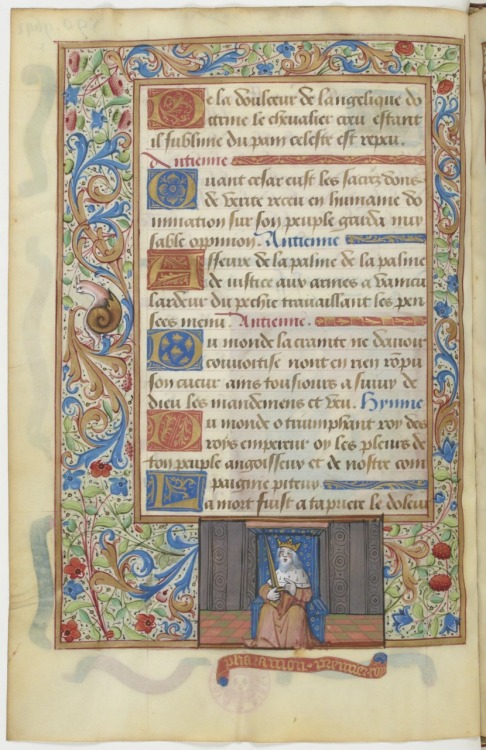 De la doulceur de langelique do
ctrine le chevalier creu estant
il sublime du pain celeste est repeu.
Antienne
Quant cesar eust les sacrez dons
de verite receu en humaine do
mination sur son peuple garda
sable oppinion. Antienne
de la palme de la palme
de iustice aux armes a vaincu
lardeur du pechie travaillant les pen
sees Antienne.
Du monde la crainte ne
couvoitise nont en rien
son cueur ains tousiours a suivy de
dieu les mandemens et veu. Hymne
Du monde o triumphant roy des
roys empereur oy les pleurs de
ton peuple angoisseux et de nostre com
paignie piteux
La mort fuist a ta
pharamon premier roy